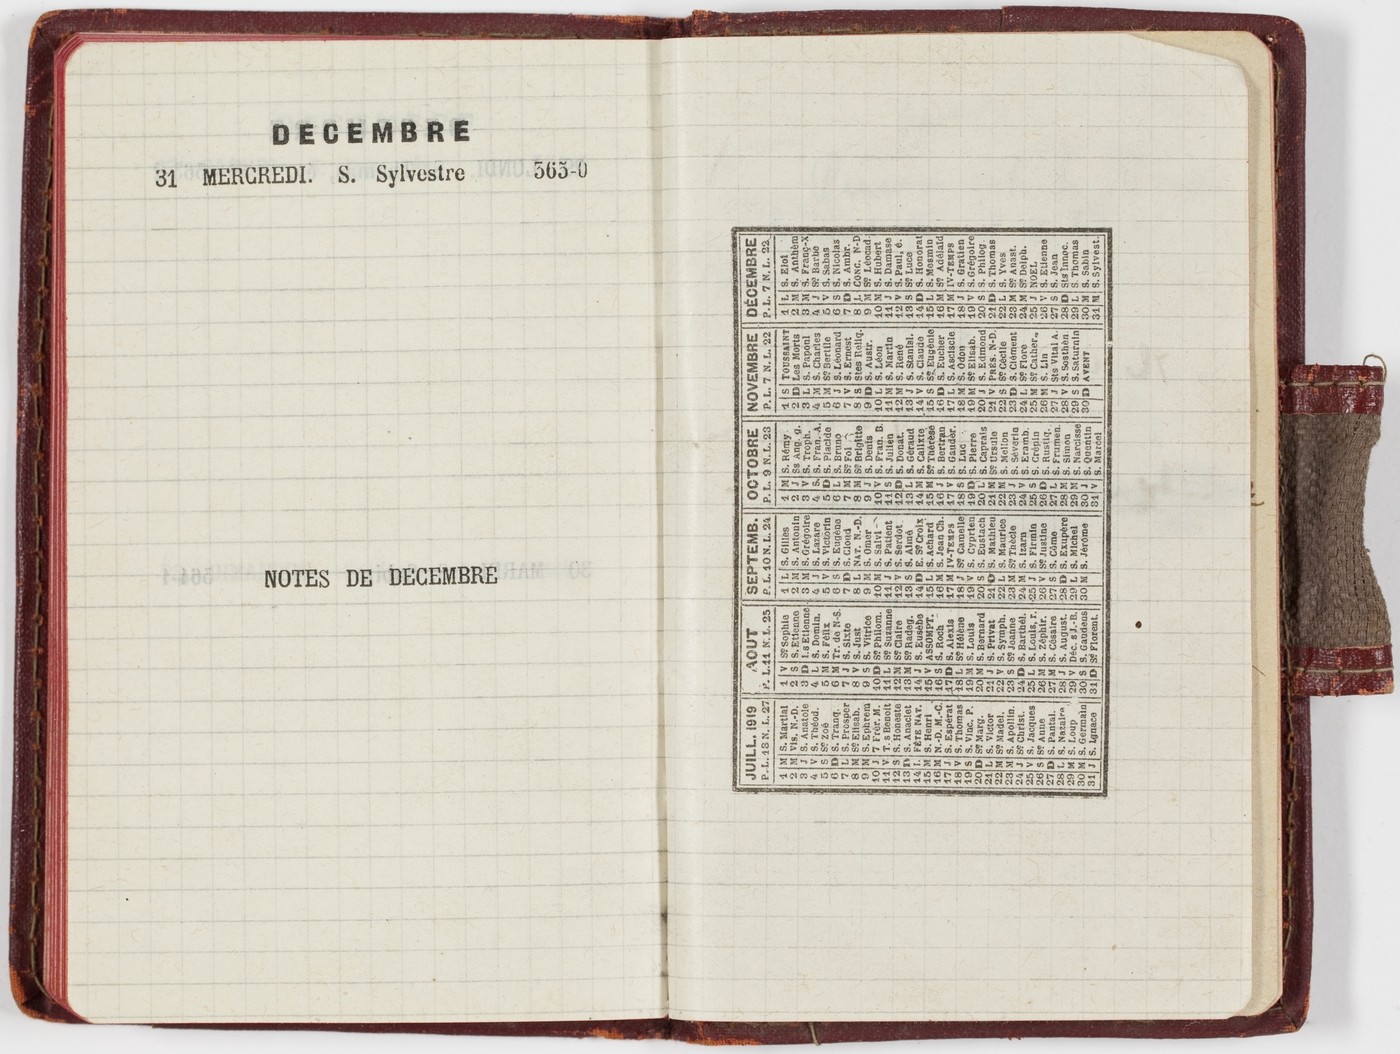 DECEMBRE
31 MERCREDI. S. Sylvestre 365-0
NOTES DE DECEMBRE
JUILL. 1919
P.L. 13 N.L. 27
1 M S. Martial
2 M Vis. N.-D.
3 J S. Anatole
4 V S. Théod.
5 S Se Zoé
6 D S. Tranq.
7 L S. Prosper
8 M Se Elisab.
9 M S. Ephrem
10 J 7 Frèr. M.
11 V T. s Benoit
12 S S. Honeste
13 D S. Anaclet
14 L FÊTE NAT.
15 M S. Henri
16 M N.-D. M.-C.
17 J S. Espérat
18 V S. Thomas
19 S S. Vinc. P.
20 D Se Marg.
21 L S. Victor
22 M Se Madel.
23 M S. Apollin.
24 J Se Christ.
25 V S. Jacques
26 S Se Anne
27 D S. Pantal.
28 L S. Nazaire
29 M S. Loup
30 M S. Germain
31 J S. Ignace
AOUT
P. L. 11 N. L. 25
1 V Se Sophie
2 S S. Etienne
3 D I. s Etienne
4 L S. Domin.
5 M S. Félix
6 M Tr. de N-S.
7 J S. Sixte
8 V S. Just
9 S S. Vitrice
10 D Se Philom.
11 L Se Suzanne
12 M Se Claire
13 M Se Radeg.
14 J S. Eusèbe
15 V ASSOMPT.
16 S S. Roch
17 D S. Alexis
18 L Se Hélène
19 M S. Louis
20 M S. Bernard
21 J S. Privat
22 V S. Symph.
23 S Se Jeanne
24 D S. Barthél.
25 L S. Louis, r.
26 M S. Zéphir.
27 M S. Césaire
28 J S. August.
29 V Déc. s J.-B.
30 S S. Gaudeus
31 D Se Florent.
SEPTEMB.
P.L. 10 N.L. 24
1 L S. Gilles
2 M S. Antonin
3 M S. Grégoire
4 J S. Lazare
5 V S. Victorin
6 S S. Eugène
7 D S. Cloud
8 L NAT. N.-D.
9 M S. Omer
10 M S. Salvi
11 J S. Patient
12 V S. Serdot
13 S S. Aimé
14 D E. Se Croix
15 L S. Achard
16 M S. Jean Ch.
17 M IV-TEMPS
18 J Se Camelle
19 V S. Cyprien
20 S S. Eustach
21 D S. Mathieu
22 L S. Maurice
23 M Se Thècle
24 M S. Izarn
25 J S. Firmin
26 V Se Justine
27 S S. Côme
28 D S. Exupère
29 L S. Michel
30 M S. Jérôme
OCTOBRE
P.L. 9 N.L. 23
1 M S. Rémy
2 J Ss Ang. g.
3 V S. Troph.
4 S S. Fran. A.
5 D S. Placide
6 L S. Bruno
7 M Se Foi
8 M Se Brigitte
9 J S. Denis
10 V S. Fran. B.
11 S S. Julien
12 D S. Donat.
13 L S. Géraud
14 M S. Calixte
15 M Se Thérèse
16 J S. Bertran
17 V S. Gaudér.
18 S S. Luc
19 D S. Pierre
20 L S. Caprais
21 M Se Ursule
22 M S. Mellon
23 J S. Séverin
24 V S. Eramb.
25 S S. Crépin
26 D S. Rustiq.
27 L S. Frumen.
28 M S. Simon
29 M S. Narcisse
30 J S. Quentin
31 V S. Marcel
NOVEMBRE
P. L. 7 N. L. 22
1 S TOUSSAINT
2 D Les Morts
3 L S. Papoul
4 M S. Charles
5 M Se Bertile
6 J S. Léonard
7 V S. Ernest
8 S Stes Reliq.
9 D S. Austr.
10 L S. Léon
11 M S. Martin
12 M S. René
13 J S. Stanisl.
14 V S. Claude
15 S Se Eugénie
16 D S. Eucher
17 L S. Asciscle
18 M S. Odon
19 M Se Elisab.
20 J S. Edmond
21 V PRÉS. N-D.
22 S Se Cécile
23 D S. Clément
24 L Se Flore
25 M Se Cather.
26 M S. Lin
27 J Sts Vital A.
28 V S. Sosthèn
29 S S. Saturnin
30 D AVENT
DÉCEMBRE
P. L. 7 N. L. 22
1 L S. Eloi
2 M S. Anthèm
3 M S. Franç-X
4 J Se Barbe
5 V S. Sabas
6 S S. Nicolas
7 D S. Ambr.
8 L CONC. N-D
9 M Se Léocad.
10 M S. Hubert
11 J S. Damase
12 V S. Paul, é.
13 S Se Luce
14 D S. Honorat
15 L S. Mesmin
16 M Se Adélaïd
17 M IV-TEMPS
18 J S. Gratien
19 V S. Grégoire
20 S S. Philog.
21 D S. Thomas
22 L S. Yves
23 M Se Anast.
24 M Se Delph.
25 J NOEL
26 V S. Etienne
27 S S. Jean
28 D Sts Innoc.
29 L S. Thomas
30 M S. Sabin
31 M S. Sylvest.